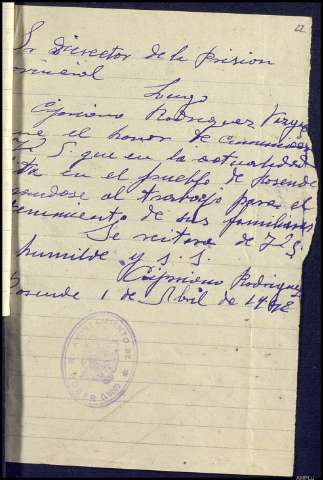 22
Sr Director de la Prision
rovincial
Lugo
Cipriano Rodriguez Verg
ne el honor de comunicar
V. S que en la actualidad
ta en el pueblo de Rosende
andose al trabajo para el
tenimiento de sus familiares
Se reitera de V. S
humilde y s. s.
Cipriano Rodriguez
Rosende 1 de Abril de 1942
AYUNTAMIENTO DE
AHPLU